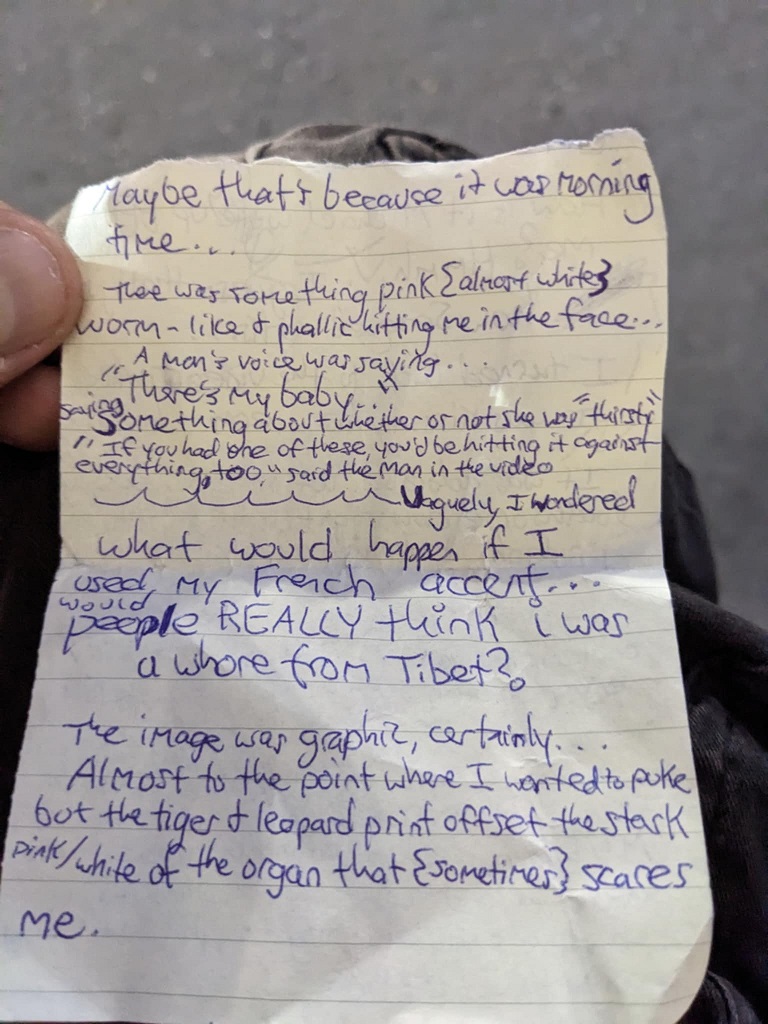 Maybe that's because it was morning
time...
There was something pink {almost white}
worm-like & phallic hitting me in the face...
A man's voice was saying...
"There's my baby..."
saying
Something about whether or not she was "thirsty"
"If you had one of these, you'd be hitting it against
everything, too," said the man in the video
Vaguely, I wondered
what would happen if I
used my French accent...
would
people REALLY think i was
a whore from Tibet?
The image was graphic, certainly...
Almost to the point where I wanted to puke
but the tiger & leopard print offset the stark
pink/white of the organ that {sometimes} scares
me.